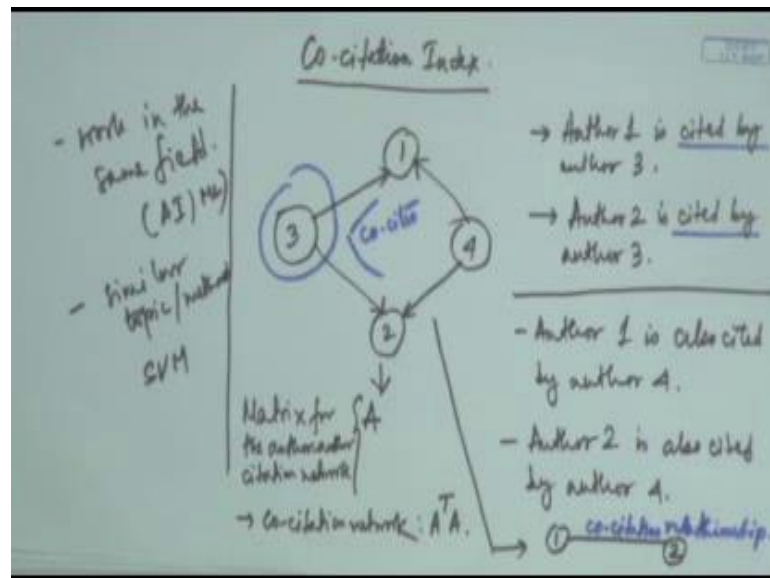 Co-citation Index.
- work in the
same field.
(AI) ML)
- similar
topic/method
SVM
1
3
co-cite
4
2
Matrix for
the author-author
citation network
A
→ Co-citation network: AᵀA.
→ Author 1 is cited by
author 3.
→ Author 2 is cited by
author 3.
- Author 1 is also cited
by author 4.
- Author 2 is also cited
by author 4.
1 co-citation relationship. 2